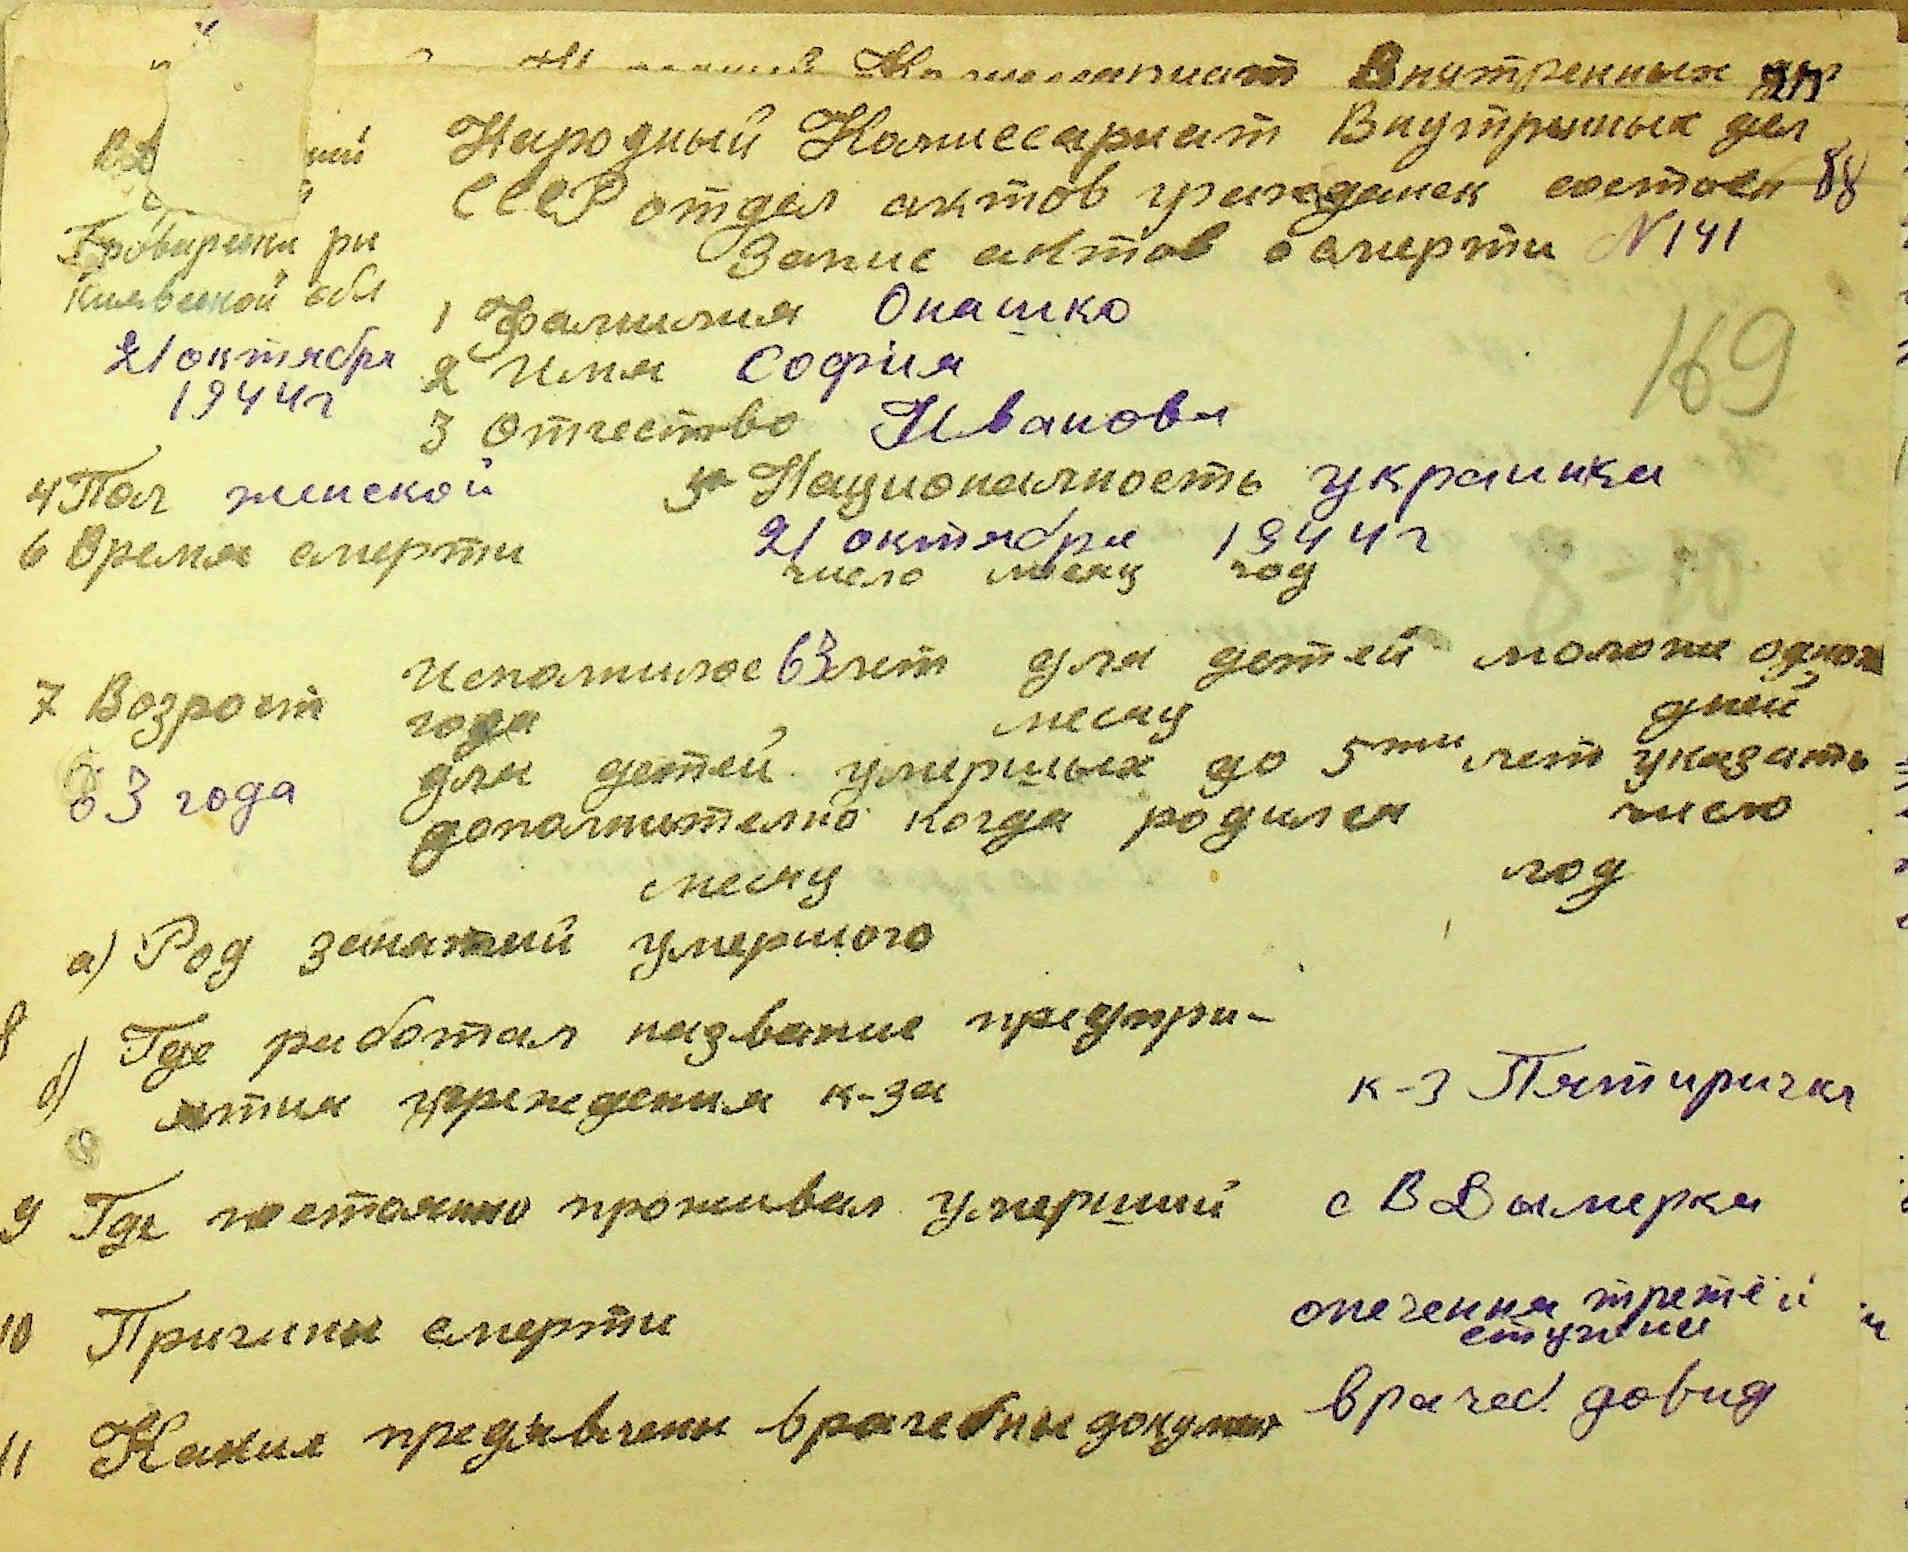 Комиссариат Внутренных дел
Народный Комиссариат Внутринных дел
СССР отдел актов гражданск состоян 88
Запис актов о смерти N 141
Броварский ри
Киевской обл
21 октября
1944г
169
1 Фамилия Онашко
2 Имя София
3 Отчество Иванова
4 Пол женской 5 Националность украинка
6 Время смерти 21 октября 1944г
число месяц год
7 Возрост исполнилос 63 лет для детей моложе одного
года месяц дней
63 года для детей умершых до 5ти лет указать
дополнително когда родился число
месяц год
8 а) Род занятий умершого
б) Где работал название предпри-
ятия учреждения к-за к-з Пятиричка
9 Где постоянно проживал умерший с В Дымерка
10 Причины смерти опечення третёй
ступени
11 Какие предъявлены врачебны документ врачеб довид